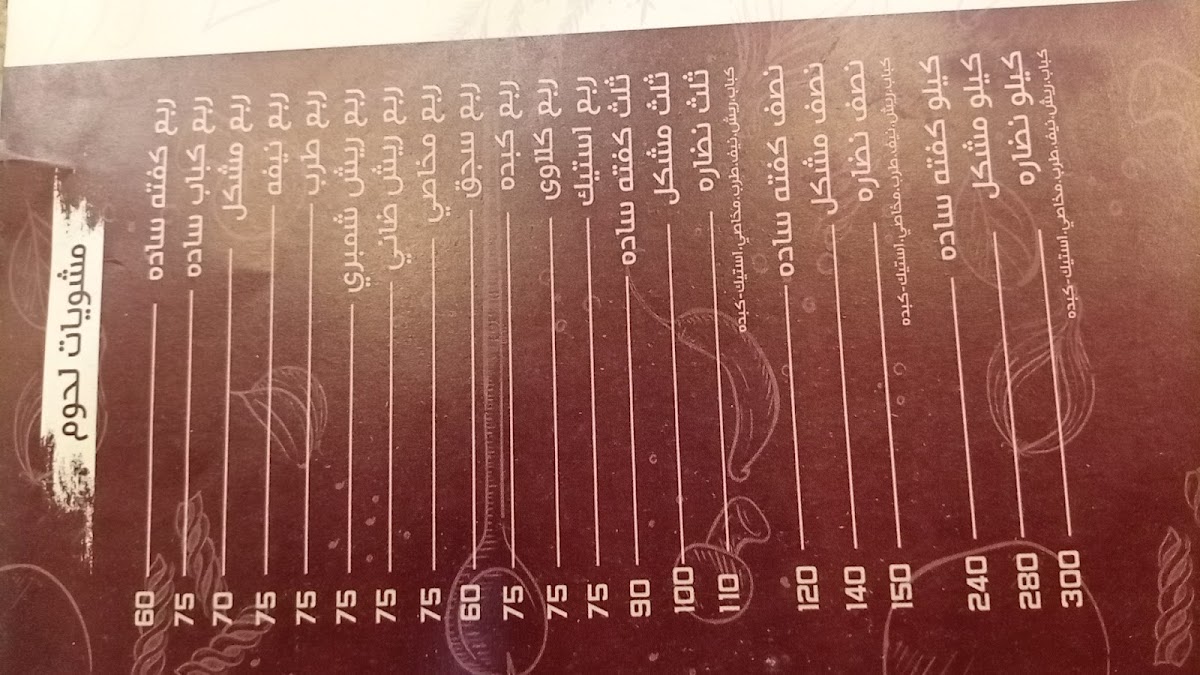 مشويات لحوم
ربع كفته ساده 60
ربع كباب ساده 75
ربع مشكل 70
ربع نيفه 75
ربع طرب 75
ربع ريش شمبري 75
ربع ريش ضاني 75
ربع مخاصي 75
ربع سجق 60
ربع كبده 75
ربع كلاوى 75
ربع استيك 75
ثلث كفته ساده 90
ثلث مشكل 100
ثلث نضاره 110
كباب,ريش,نيف,طرب,مخاصي,استيك-كبده
نصف كفته ساده 120
نصف مشكل 140
نصف نضاره 150
كباب,ريش,نيف,طرب,مخاصي,استيك-كبده
كيلو كفته ساده 240
كيلو مشكل 280
كيلو نضاره 300
كباب,ريش,نيف,طرب,مخاصي,استيك-كبده